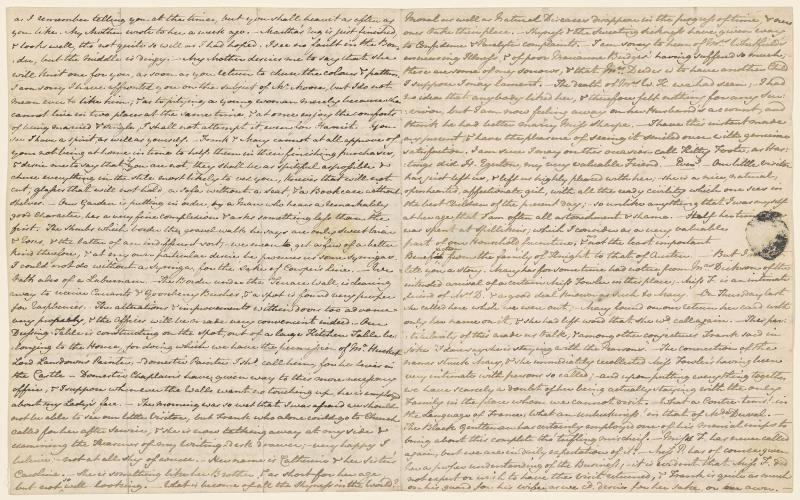 a. I remember telling you at the time, but you shall hear it as often as
you like. My Mother wrote to her a week ago. Martha's rug is just finished,
& looks well, tho' not quite so well as I had hoped. I see no fault in the Bor-
der, but the Middle is dingy. My Mother desires me to say that she
will knit one for you, as soon as you return to chuse the colours & pattern.
I am sorry I have affronted you on the subject of Mr. Moore, but I do not
mean ever to like him; & as to pitying a young woman merely because she
cannot live in two places at the same time, & at once enjoy the comforts
of being married & single, I shall not attempt it, even for Harriot. You
see I have a spirit, as well as yourself. Frank & Mary cannot at all approve of
your not being at home in time to help them in their finishing purchases,
& desire me to say that, if you are not, they shall be as spiteful as possible &
chuse everything in the stile most likely to vex you, Knives that will not
cut, glasses that will not hold, a sofa without a seat, & a Bookcase without
shelves. Our Garden is putting in order, by a Man who bears a remarkably
good Character, has a very fine complexion & asks something less than the
first. The Shrubs which border the gravel walk he says are only sweetbriar
& Roses, & the latter of an indifferent sort; we mean to get a few of a better
kind therefore, & at my own particular desire he procures us some Syringas.
I could not do without a Syringa, for the sake of Cowper's Line. We
talk also of a Laburnam. The Border under the Terrace Wall, is clearing
away to receive Currants & Gooseberry Bushes, & a spot is found very proper
for Raspberries. The alterations & improvements within doors too advance
very properly, & the Offices will be made very convenient indeed. Our
Dressing-Table is constructing on the spot, out of a large Kitchen Table be-
longing to the House, for doing which we have the permission of Mr. Husket
Lord Lansdown's Painter, domestic Painter I shd call him, for he lives in
the Castle Domestic Chaplains have given way to this more necessary
office, & I suppose whenever the Walls want no touching up, he is employed
about my Lady's face. The morning was so wet that I was afraid we should
not be able to see our little Visitor, but Frank who alone could go to Church
called for her after Service, & she is now talking away at my side &
examining the Treasures of my Writing-desk drawer; very happy I
believe; not at all shy of course. Her name is Catherine & her Sister's
Caroline. She is something like her Brother, & as short for her age
but not so well-looking. What is become of all the Shyness in the World?
Moral as well as Natural Diseases disappear in the progress of time, & new
ones take their place. Shyness & the Sweating Sickness have given way
to Confidence & Paralytic complaints. I am sorry to hear of Mrs. Whitfield's
increasing Illness, & of poor Marianne Bridges' having suffered so much;
these are some of my sorrows, & that Mrs. Deedes is to have another Child
I suppose I may lament. The death of Mrs. W. K. we had seen; I had
no idea that anybody liked her, & therefore felt nothing for any Sur-
vivor, but I am now feeling away on her Husband's account, and
think he had better marry Miss Sharpe. I have this instant made
my present, & have the pleasure of seeing it smiled over with genuine
satisfaction. I am sure I may on this occasion call Kitty Foote, as Has-
tings did H. Egerton, my "very valuable Friend." Eveng Our little visitor
has just left us, & left us highly pleased with her; she is a nice, natural,
openhearted, affectionate girl, with all the ready civility which one sees in
the best Children of the present day; so unlike anything that I was myself
at her age, that I am often all astonishment & shame. Half her time
was spent at Spillikins; which I consider as a very valuable
part of our Household furniture, & as not the least important
Benefaction from the family of Knight to that of Austen. But I
tell you a story. Mary has for some time had notice from Mrs. Dickson of the
intended arrival of a certain Miss Fowler in this place; Miss F. is an intimate
friend of Mrs. D. & a good deal known as such to Mary. On Thursday last
she called here while we were out; Mary found on our return her card with
only her name on it, & she had left word that she wd call again. The par-
ticularity of this made us talk, & among other conjectures Frank said in
joke "I dare say she is staying with the Pearsons." The connection of the
names struck Mary, & she immediately recollected Miss Fowler's having been
very intimate with persons so called; and upon putting everything together
we have scarcely a doubt of her being actually staying with the only
Family in the place whom we cannot visit. What a Contretems! in
the Language of France; What an unluckiness! in that of Mde Duval.
The Black Gentleman has certainly employed one of his menial imps to
bring about this complete tho' trifling mischief. Miss F. has never called
again, but we are in daily expectation of it. Miss P. has of course given
her a proper understanding of the Business; it is evident that Miss F. did
not expect or wish to have the visit returned, & Frank is quite as much
on his guard for his wife, as we cd desire for her sake, or our own.